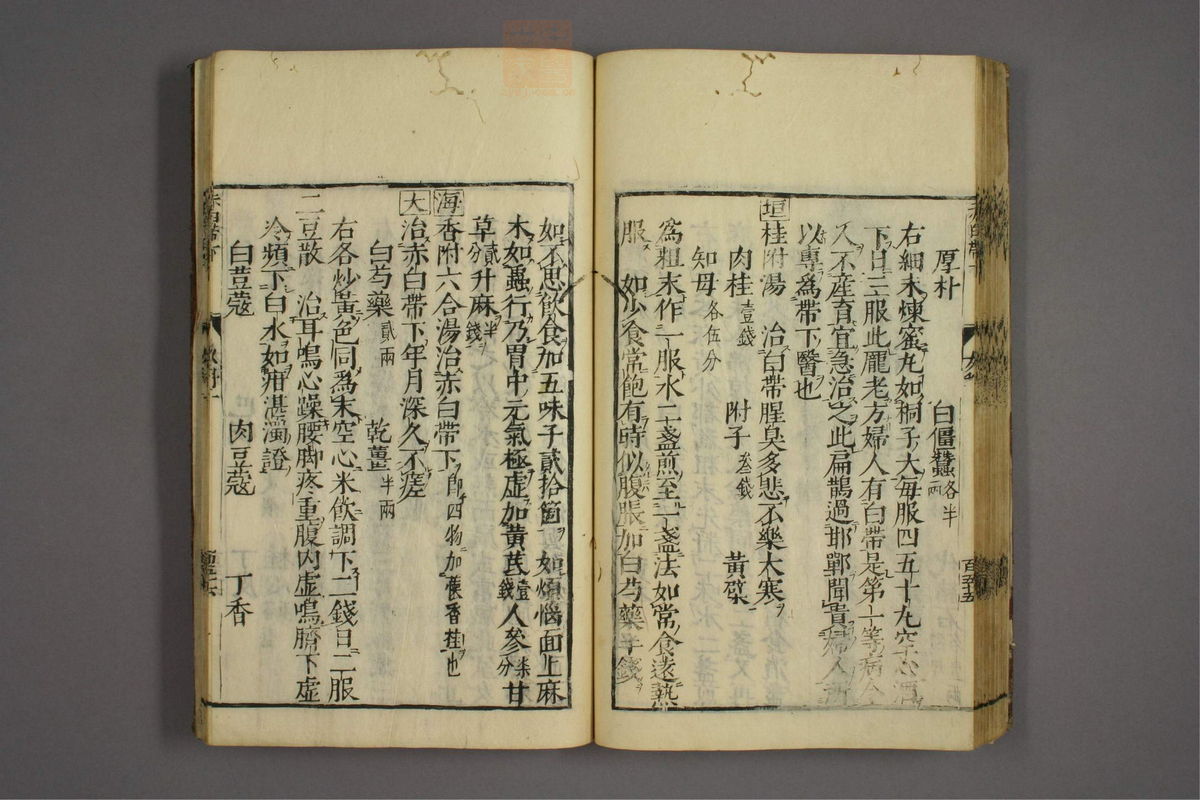 厚朴 白僵蠶各半兩
右細末煉蜜丸如桐子大每服四五十丸空心酒
下日三服此龐老方婦人有白帶是第一等病令
人不產育宜急治之此扁鵲過邯鄲聞貴婦人所
以專為帶下醫也
垣桂附湯 治白帶腥臭多悲不樂大寒
肉桂壹錢 附子叁錢 黃蘗
知母各伍分
為粗末作一服水二盞煎至一盞法如常食遠熱
服 如少食常飽有時似腹脹加白芍藥半錢
如不思飲食加五味子貳拾箇 如煩惱面上麻
木如蟲行乃胃中元氣極虛加黃芪壹錢人參柒分甘
草貳分升麻半錢
海香附六合湯治赤白帶下即四物加茴香桂也
大治赤白帶下年月深久不瘥
白芍藥貳兩 乾薑半兩
右各炒黃色同為末空心米飲調下二錢日二服
二豆散 治耳鳴心躁腰脚疼重腹內虛鳴臍下虛
冷頻下白水如泔湛濁證
白荳蔻 肉豆蔻 丁香